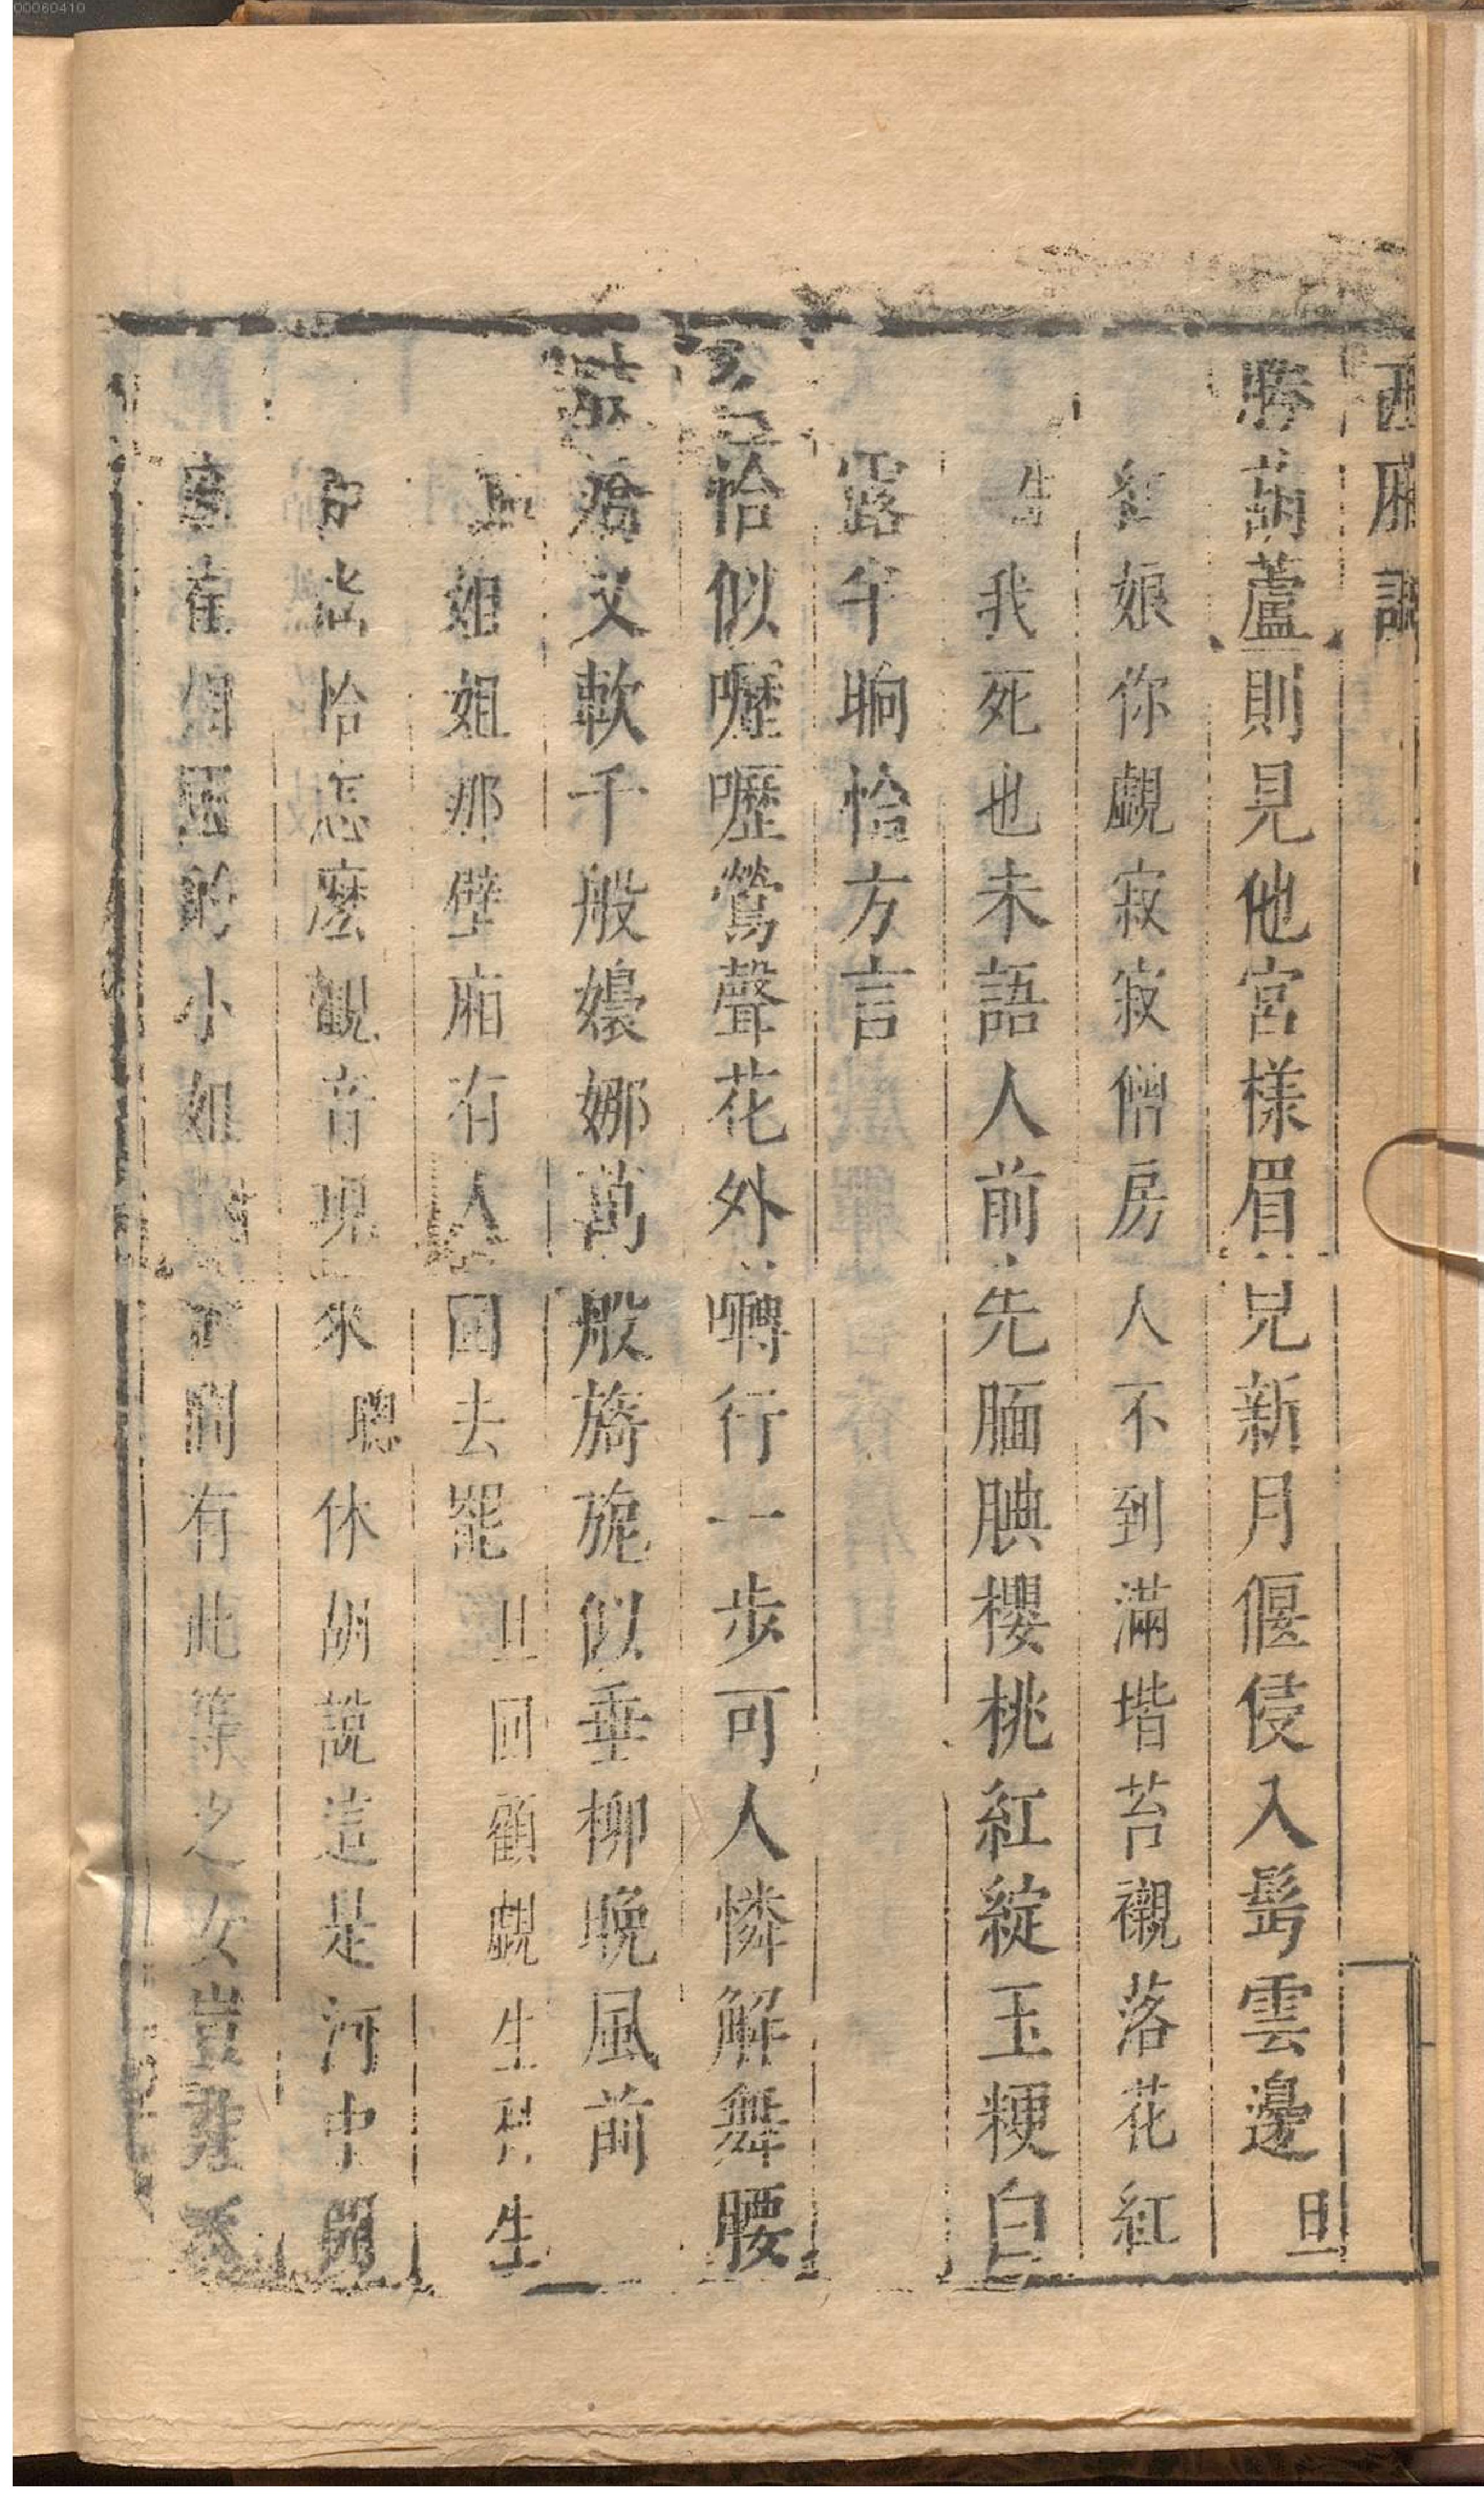 00060410
西廂記
勝葫蘆則見他宮樣眉兒新月偃侵入髩雲邊旦
紅娘你覷寂寂僧房人不到滿堦苔襯落花紅
生我死也未語人前先腼腆櫻桃紅綻玉粳白
露半晌恰方言
恰似嚦嚦鶯聲花外囀行一步可人憐解舞腰
又軟千般嬝娜萬般旖旎似垂柳晚風前
姐姐那壁廂有人回去罷旦回顧覷生科生
恰怎麽觀音現來聰休胡說這是河中開
府崔相國的小姐有此等之女豈非天